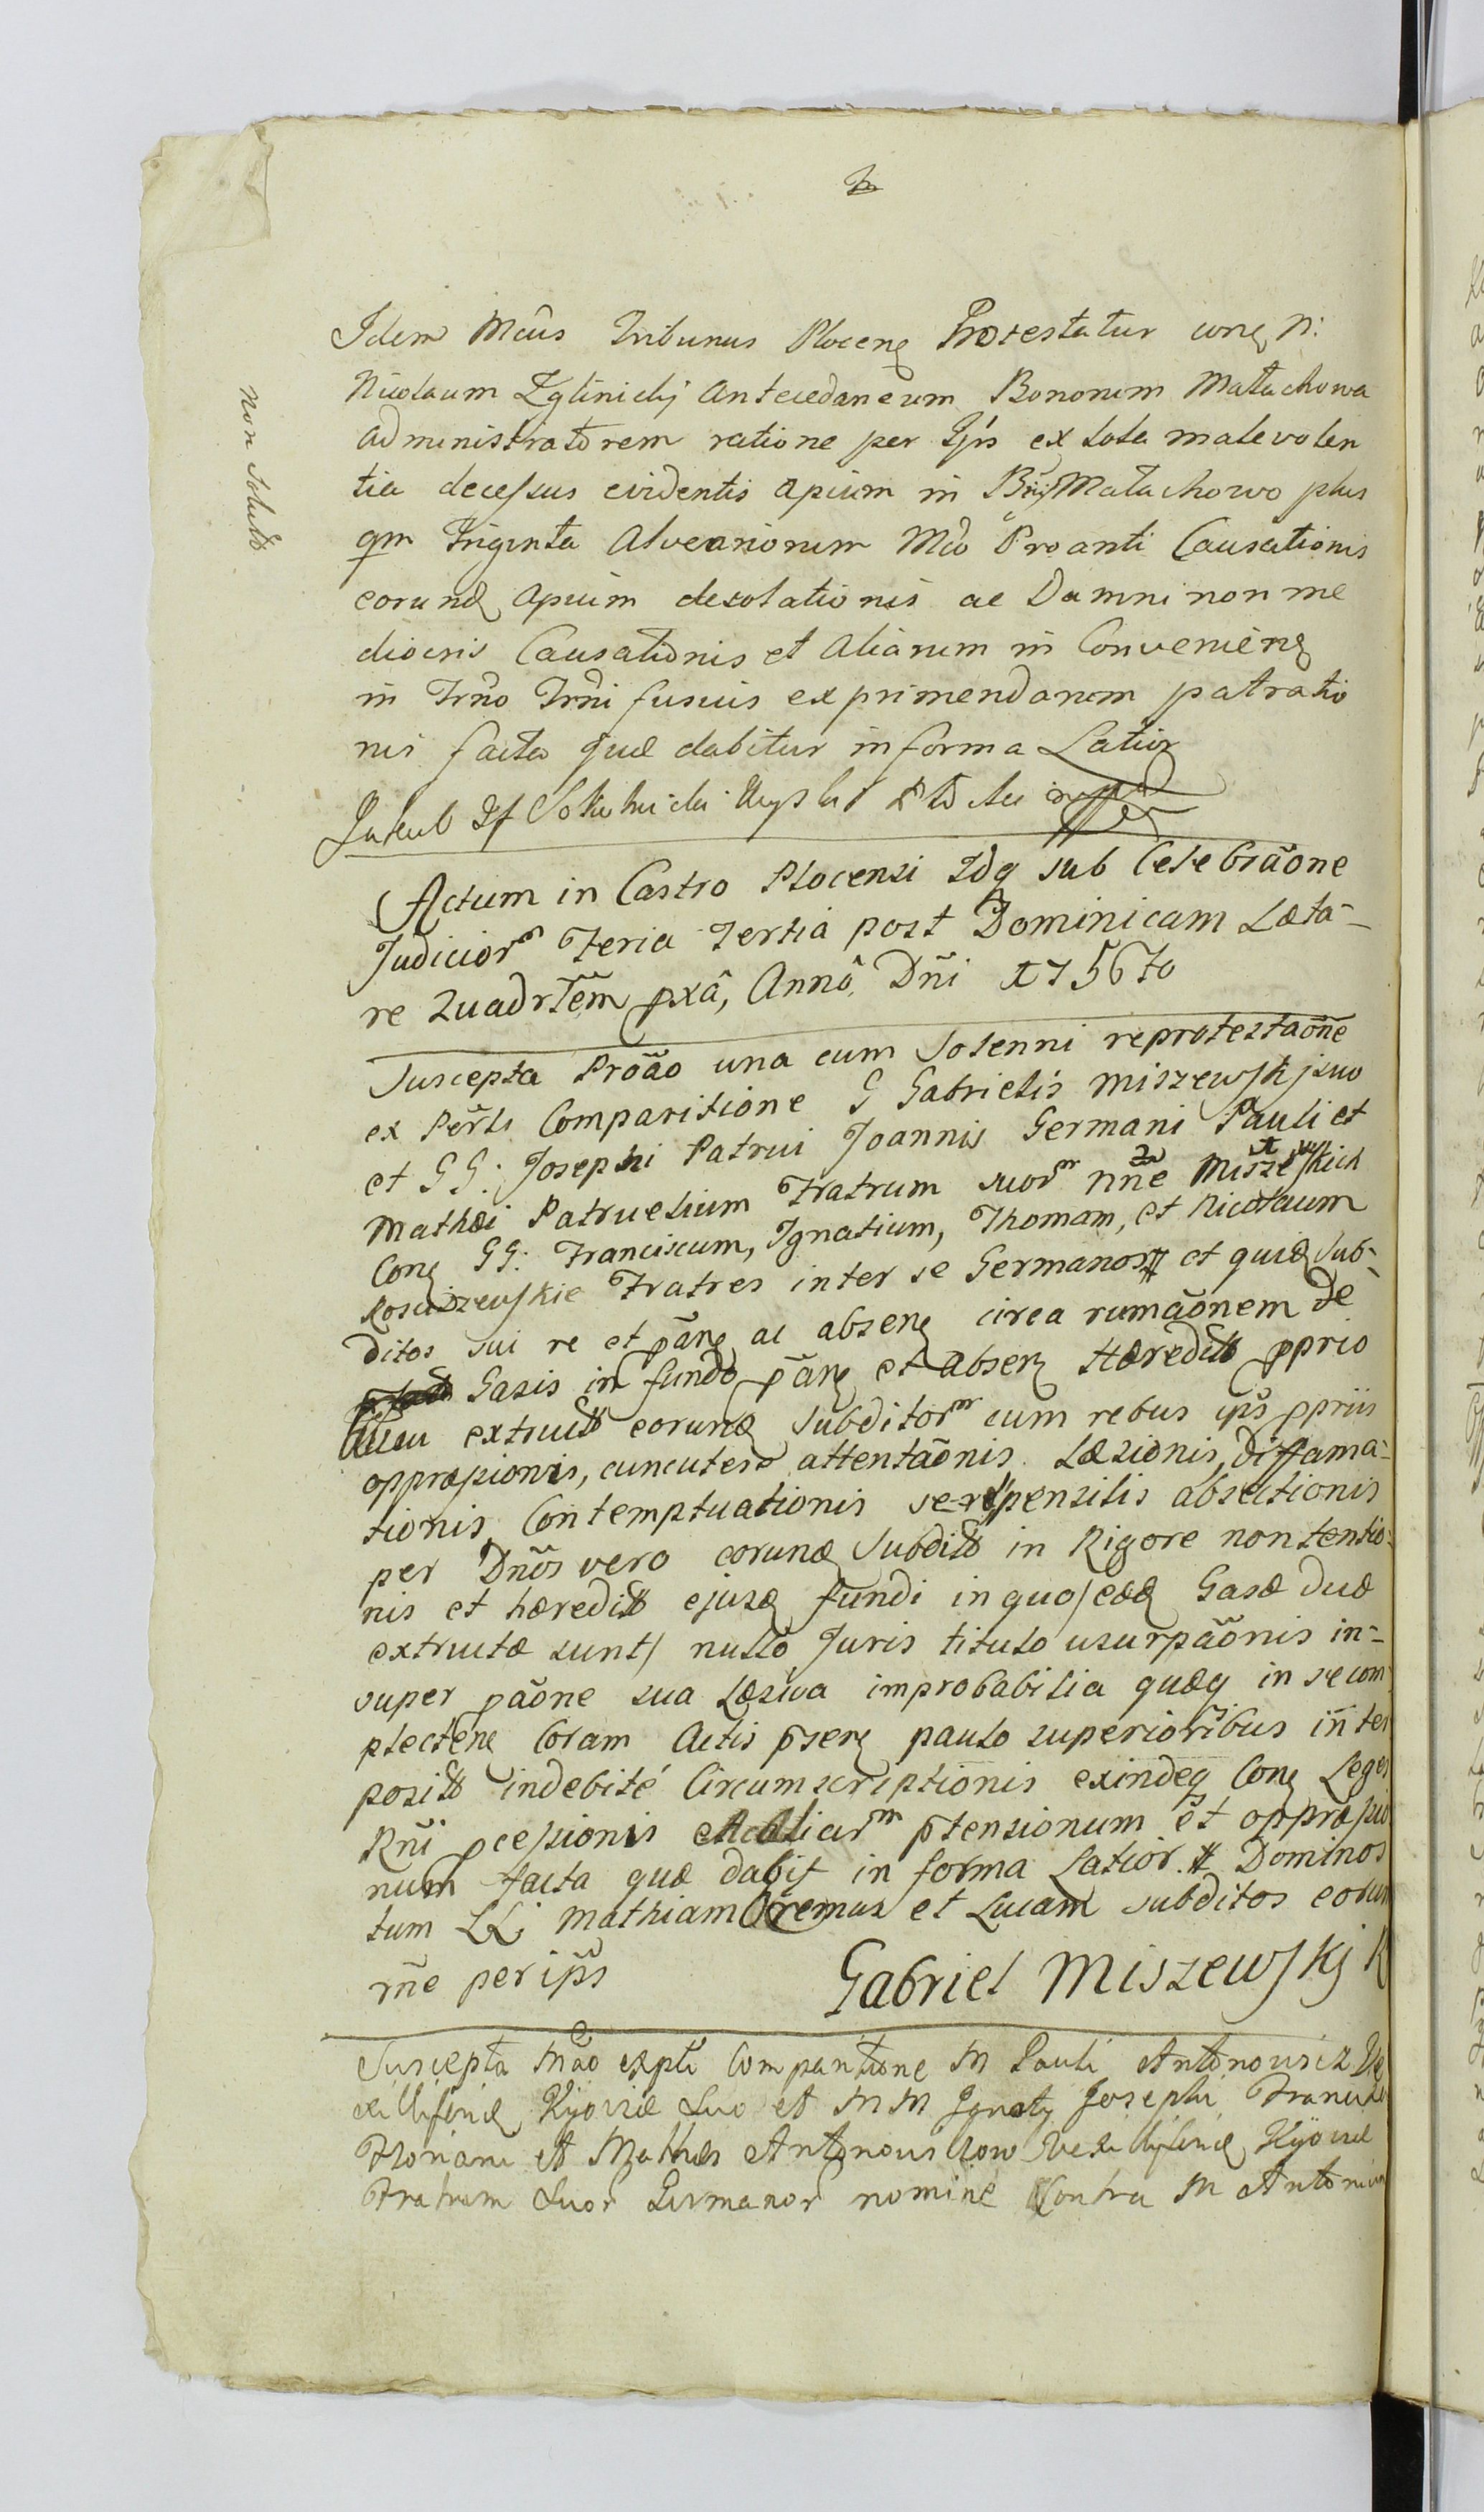 Non solut
Idem Mcus Tribunus Plocens Protestatur cons N:
Nicolaum Zglinicky Antecedaneum Bonorum Małachowa
administratorem ratione per Ips ex tota malevolen
tia decessus evidentis apium in Małachowo plus
qm Triginta Alvearionum Mco Proanti Causationis
eorund apium desolationis ac Damni non me
diocris Causationis et aliarum in Conveniens
in Trno Trni fusius exprimendarum patratio
nis facta quæ dabitur in forma Latior
Actum in Castro Plocensi Idq sub Celebrãone
Judiciorm Feria Tertia post Dominicam Læta-
re Quadrlem pxâ, Annô Dñi 1756to
Suscepta Proão una cum Solenni reprotestaoñe
ex Perls Comparitione G Gabrielis Miszewskj suo
et GG: Josephi Patrui Joannis Germani Pauli et
Mathæi Patruelium Fratrum suorm nñe Miszewskich
Cons GG: Franciscum, Ignatium, Thomam, et Nicolaum
Kosciszewskie Fratres inter se Germanos # et quid Sub-
ditos sui re et pãns ac absens circa rumãonem de
Gasis in fundo pãns et absens Hæredit pprio
extruct eorund Subditorm cum rebus ips ppriis
oppræssionis, attentaõnis Læsionis, Diffama-
tionis, Contemptuationis absectionis
per Dños vero eorund Subdit in Rigore nontentio-
nis et hæredit ejusd fundi in quo/ eæd Gasæ duæ
extructæ sunt/ nullô Juris titulo usurpãonis in-
super pãone sua Læsiva improbabilia quæq in se com
plectene Coram Actis pserq paulo superioribus inter
posit indebité Circumscriptionis exindeq Cons Leges
Rñi pcessionis et aliarm ptensionum et oppræssio
num facta quæ dabit in forma Latior. # Dominos
tum LL: Mathiam Gremza et Lucam subditos eorum
rñe per ips
Gabriel Miszewskj
Suscepta Mão expti Comparitione M Pauli Antonowicz Ve
xilliferid Kijoviæ Suo et MM Ignaty Josephi Francisci
Floriani et Mathæi Antonowiczow Vexilliferid Kijoviæ
Fratrum Suor Germanor nomine Contra M Antonium